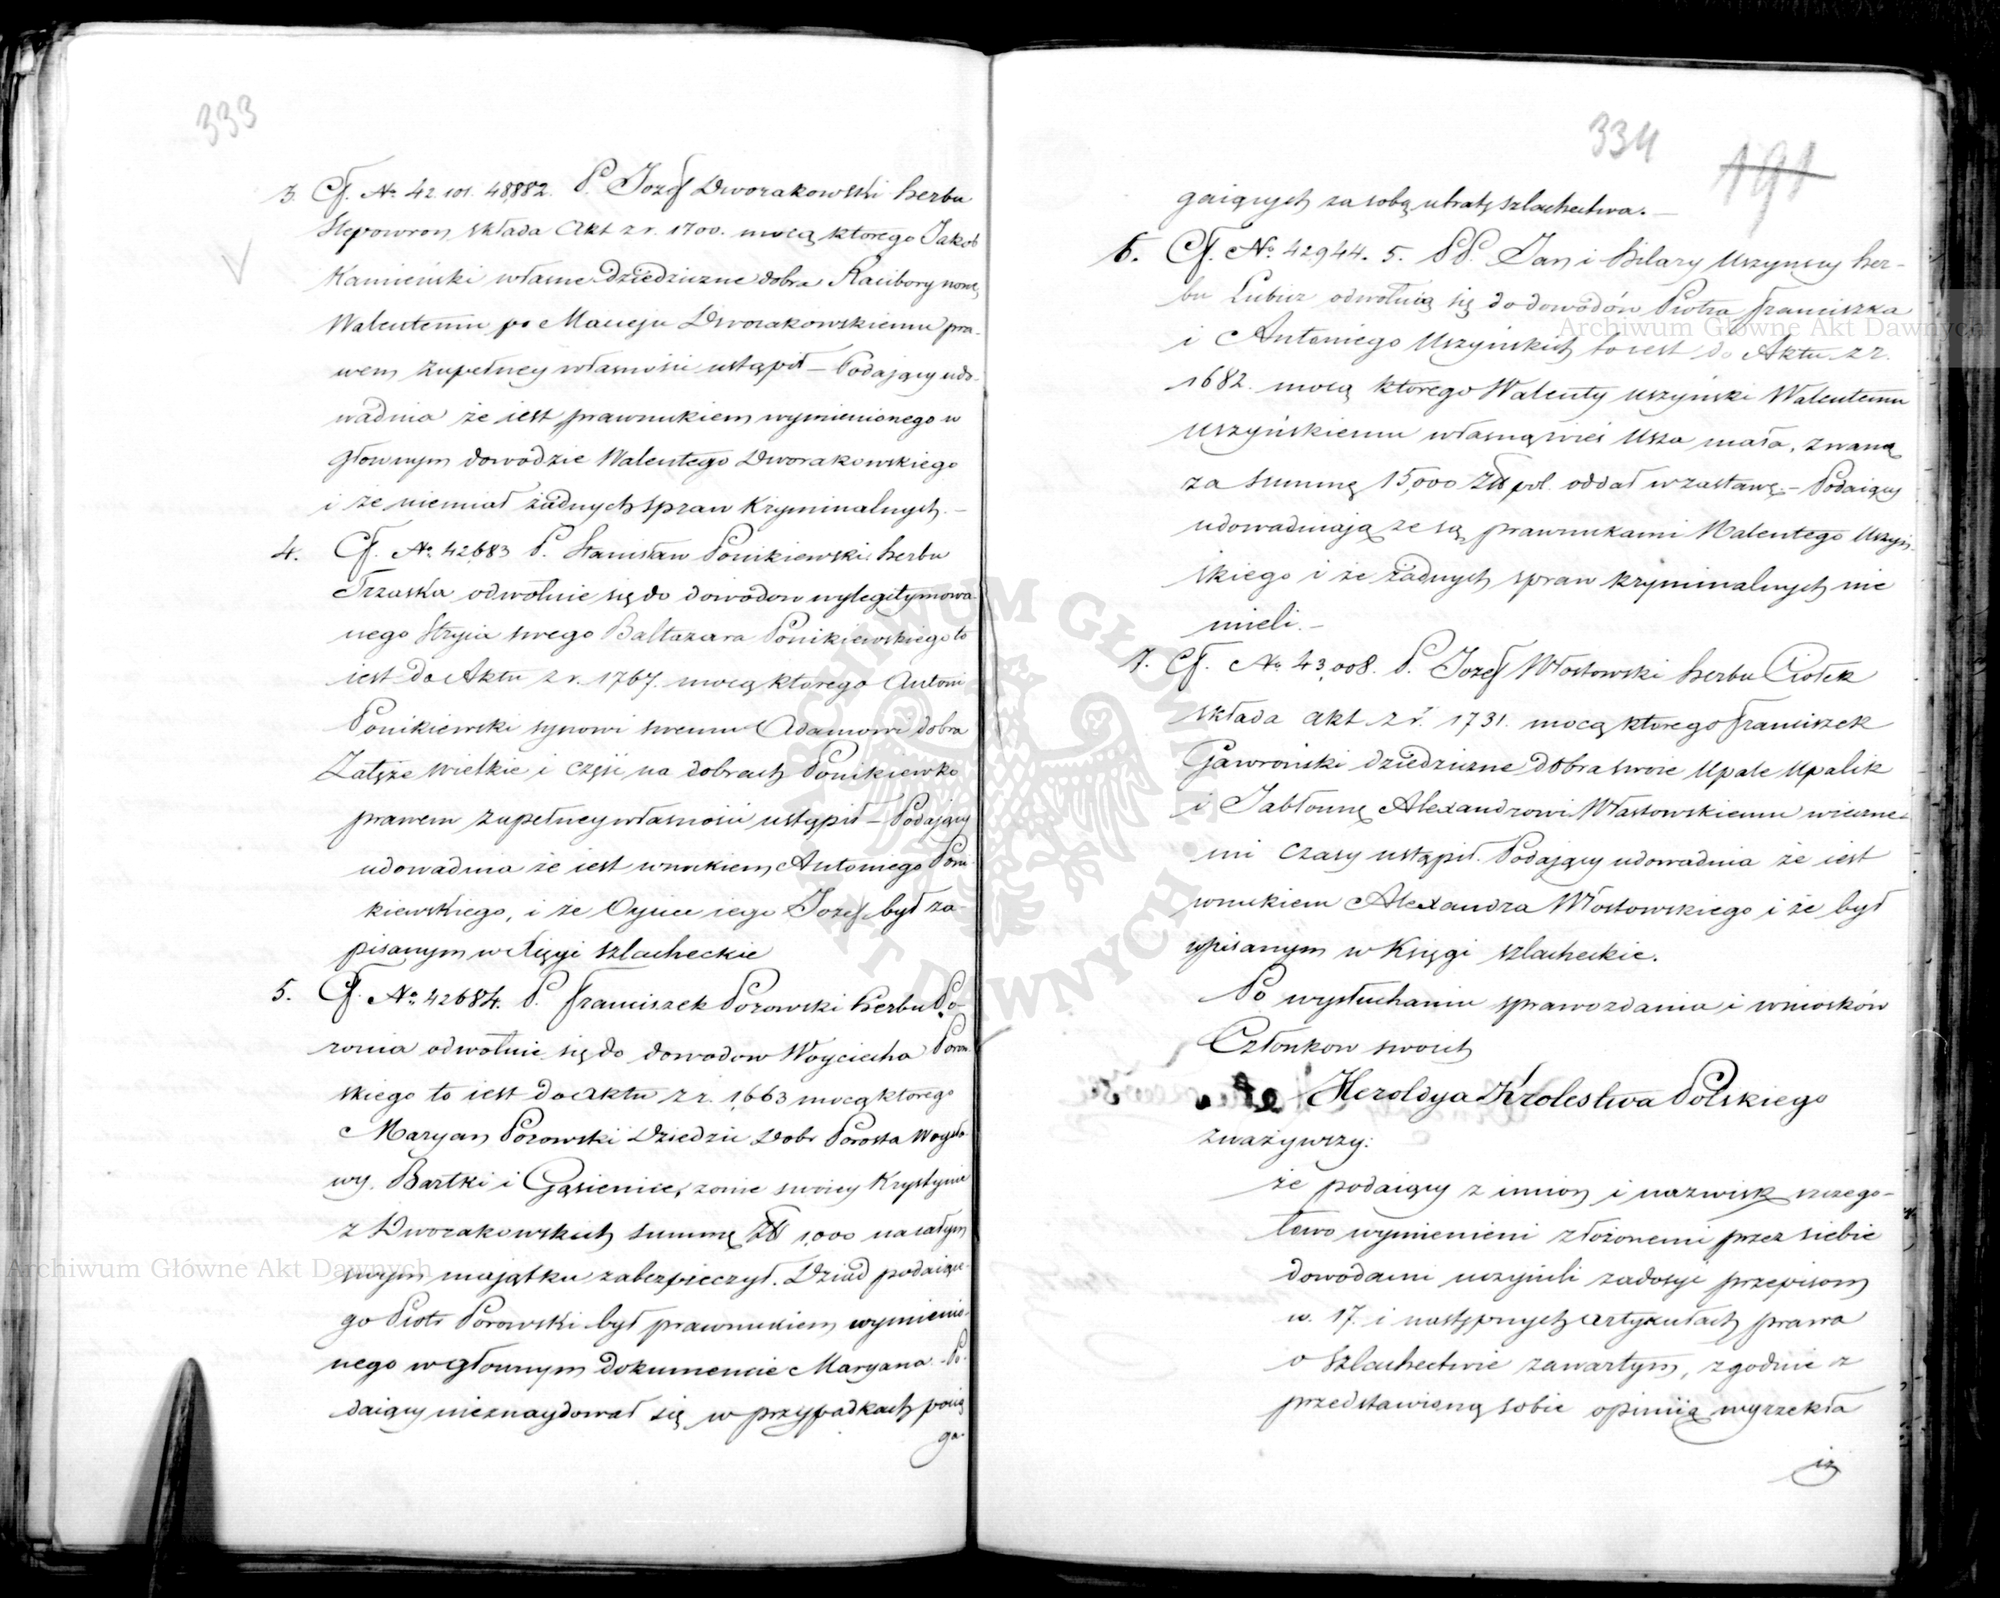 333
3. Cf. No 42.101. 48,882. P. Jozef Dworakowski herbu
Slepowron składa Akt z r. 1700. mocą którego Jakob
Kamieński własne dziedziczne dobra Racibory nowe
Walentemu po Macieju Dworakowskiemu pra-
wem zupełney własności ustąpił – Podaiący udo-
wadnia że iest prawnukiem wymienionego w
głownym dowodzie Walentego Dworakowskiego
i że niemiał żadnych spraw kryminalnych. –
4. Cf. No 42,683 P. Stanisław Ponikiewski herbu
Trzaska odwołuie się do dowodow wylegitymowa
nego Stryia swego Baltazara Ponikiewskiego to
iest do Aktu z r. 1767. mocą ktorego Antoni
Ponikiewski synowi swemu Adamowi dobra
Załęże wielkie i częsć na dobrach Ponikiewko
prawem zupełney własności ustąpił – Podający
udowadnia że iest wnukiem Antoniego Poni
kiewskiego, i że Oyciec iego Jozef był za-
pisanym w Xięgi szlacheckie
5. Cf. No 42684. P. Franciszek Porowski herbu Po-
ronia odwołuie się do dowodow Woyciecha Porow
skiego to iest do aktu z r. 1,663 mocą ktorego
Maryan Porowski Dziedzic Dobr Porosła Woysło
wy. Bartki i Gąsienice, zonie swoiey Krystynie
z Dworakowskich summę Zł 1,000 na całym
swym majątku zabezpieczył. Dziad podaiące-
go Piotr Porowski był prawnukiem wymienio-
nego w głownym dokumencie Maryana. Po-
daiący nieznaydował się w przypadkach pocią
ga-
334
191
gaiących za sobą utratę szlachectwa. –
6. Cf. No 42944. 5. PP. Jan i Hilary Uszyńscy her-
bu Lubicz odwołuią się do dowodów Piotra Franciszka
i Antoniego Uszyńskich to iest do Aktu z r.
1682. mocą ktorego Walenty Uszyński Walentemu
Uszyńskiemu własną wieś Usza mała, zwaną
za summę 15,000 Zł pol. oddał w zastawę. – Podaiący
udowadniają że są prawnukami Walentego Uszyń
skiego i że żadnych spraw kryminalnych nie
mieli. –
7. Cf. No 43,008. P. Jozef Włostowski herbu Ciołek
składa akt z r. 1731. mocą ktorego Franciszek
Gawroński dziedziczne dobra swoie Upale Upalik
i Jabłonnę Alexandrowi Włostowskiemu wieczne-
mi czasy ustąpił. Podający udowadnia że iest
wnukiem Alexandra Włostowskiego i że był
wpisanym w Księgi szlacheckie.
Po wysłuchaniu sprawozdania i wniosków
Członkow swoich
Heroldya Królestwa Polskiego
zważywszy:
że podaiący z imion i nazwisk szczego-
łowo wymienieni złożonemi przez siebie
dowodami uczynili zadosyć przepisom
w. 17. i następnych artykułach prawa
o Szlachectwie zawartym, zgodnie z
przedstawioną sobie opiniią wyrzekła
iż
Archiwum Główne Akt Dawnych
Archiwum Główne Akt Dawnych
ARCHIWUM GŁÓWNE AKT DAWNYCH